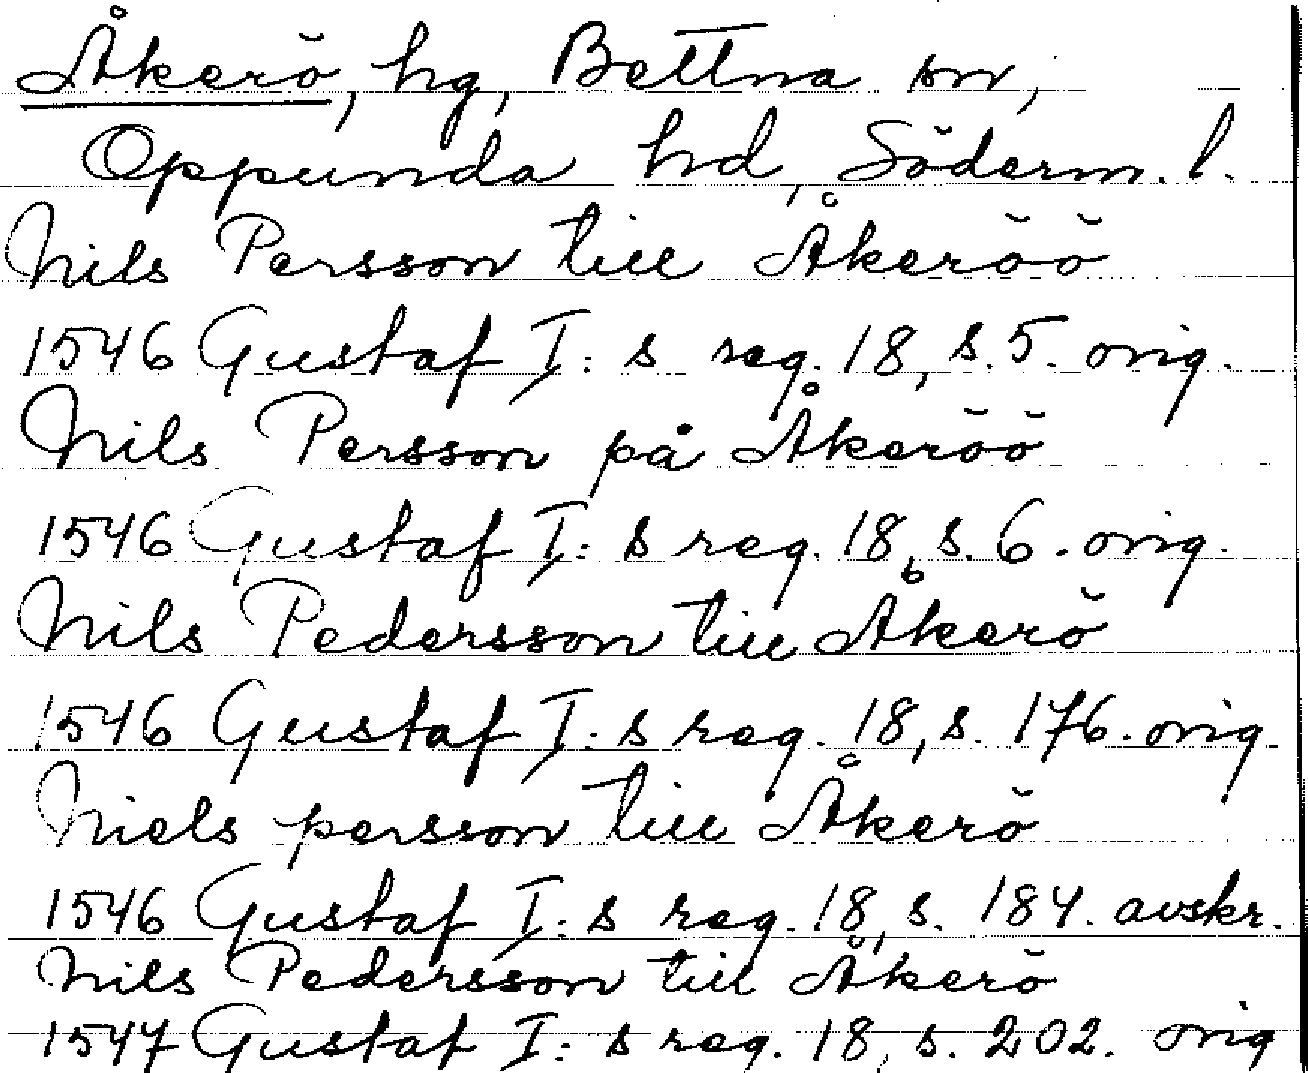 Åkerö, hg, Bettna sn,
Oppunda hd, Söderm. l.
Nils Persson till Åkeröö
1546 Gustaf I: s reg. 18, s. 5. orig.
Nils Persson på Åkeröö
1546 Gustaf I: s reg. 18, s. 6. orig.
Nils Pedersson till Åkerö
1546 Gustaf I: s reg. 18, s. 176. orig.
Niels persson till Åkerö
1546 Gustaf I: s reg. 18, s. 184. avskr.
Nils Pedersson till Åkerö
1547 Gustaf I: s reg. 18, s. 202. orig